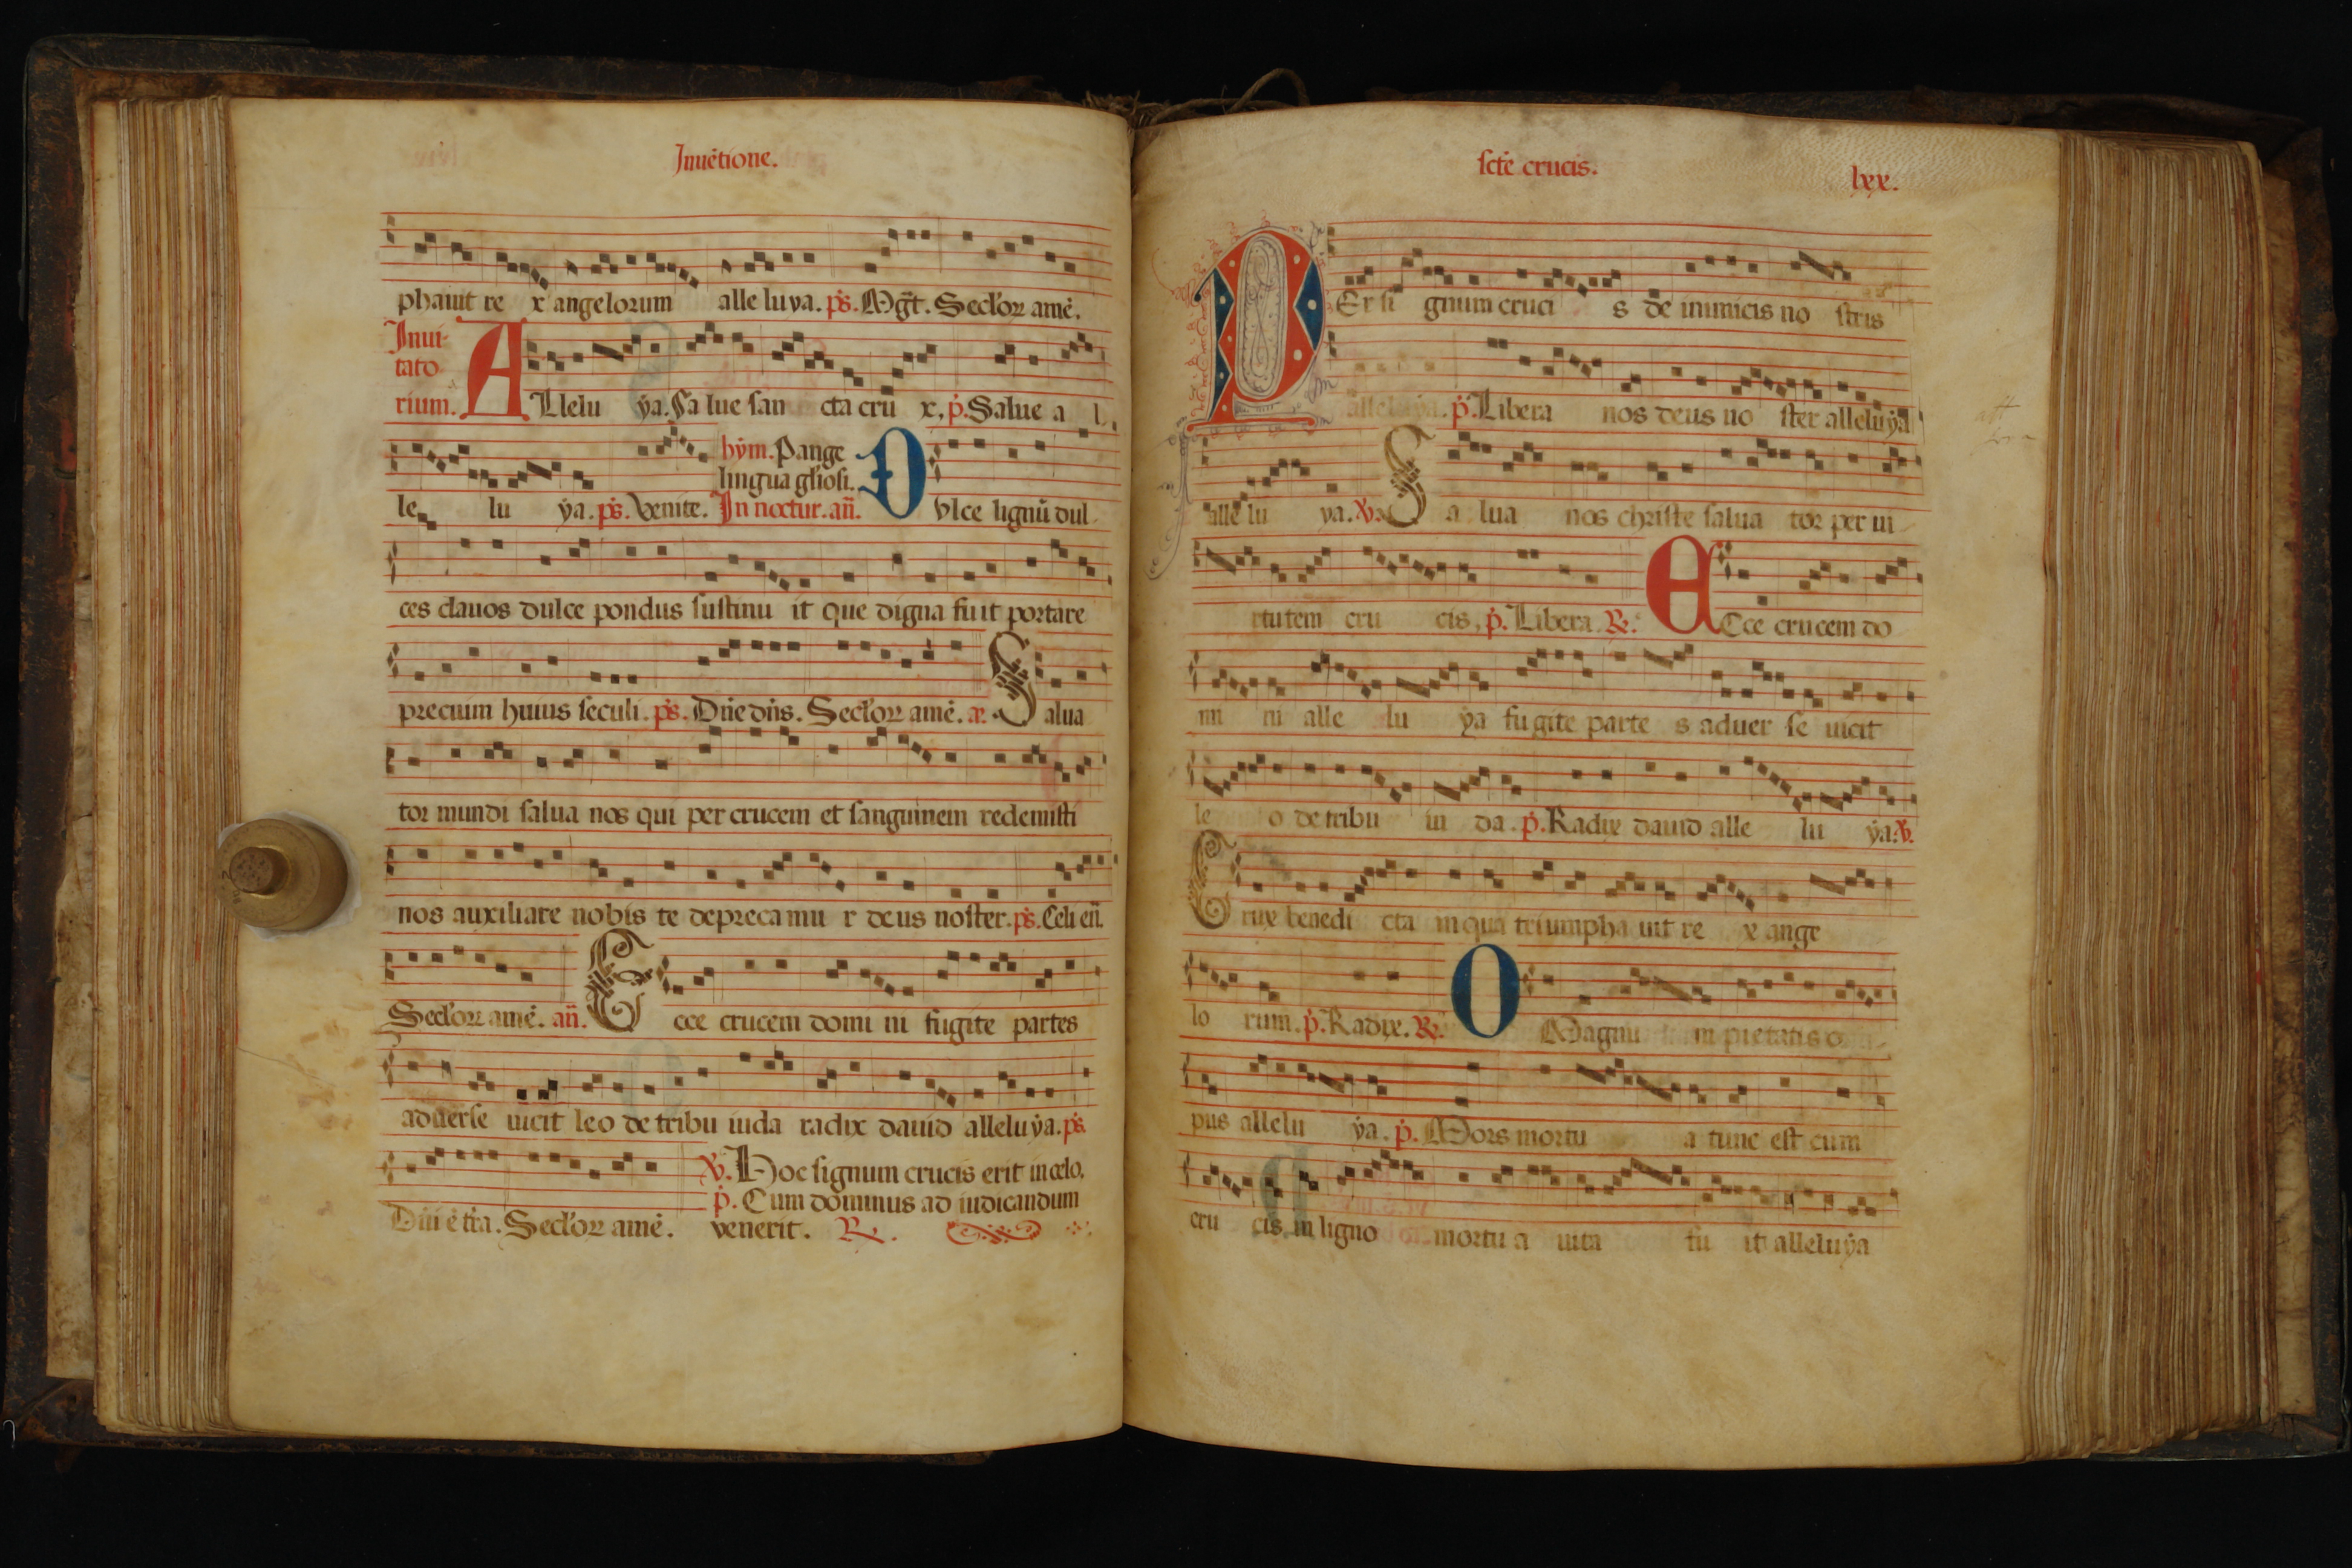 Inuētione.
phauit re x angelorum alle luya. ps. Mgt. Seclorꝝ amē.
Inui-
tato
rium. ALlelu ya. Sa lue san cta cru x, p. Salue a l.
le lu ya. ps. Venite.
hym. Pange
lingua gliosi.
In noctur. añ. DVlce lignū dul
ces clauos dulce pondus sustinu it que digna fuit portare
precium huius seculi. ps. Dñe dñs. Seclorꝝ amē. Salua
tor mundi salua nos qui per crucem et sanguinem redemisti
nos auxiliare nobis te depreca mu r deus noster. ps. Celi en̄.
Seclorꝝ amē. añ. Ecce crucem domi ni fugite partes
aduerse uicit leo de tribu iuda radix dauid alleluya. ps
Dñi ē t̄ra. Seclorꝝ amē.
℣. Hoc signum crucis erit in celo.
p. Cum dominus ad iudicandum
venerit. ℟.
scte crucis. lxx.
PEr si gnum cruci s de inimicis no stris
alleluya. p. Libera nos deus no ster alleluya
alle lu ya. ℣. Salua nos christe salua tor per ui
rtutem cru cis. p. Libera. ℟. ECce crucem do
mi ni alle lu ya fugite parte s aduer se uicit
le o de tribu iu da. p. Radix dauid alle lu ya. ℣.
Crux benedi cta in qua triumpha uit re x ange
lo rum. p. Radix. ℟. O Magnu m pietatis o
pus allelu ya. p. Mors mortu a tunc est cum
cru cis in ligno mortu a uita fu it alleluya